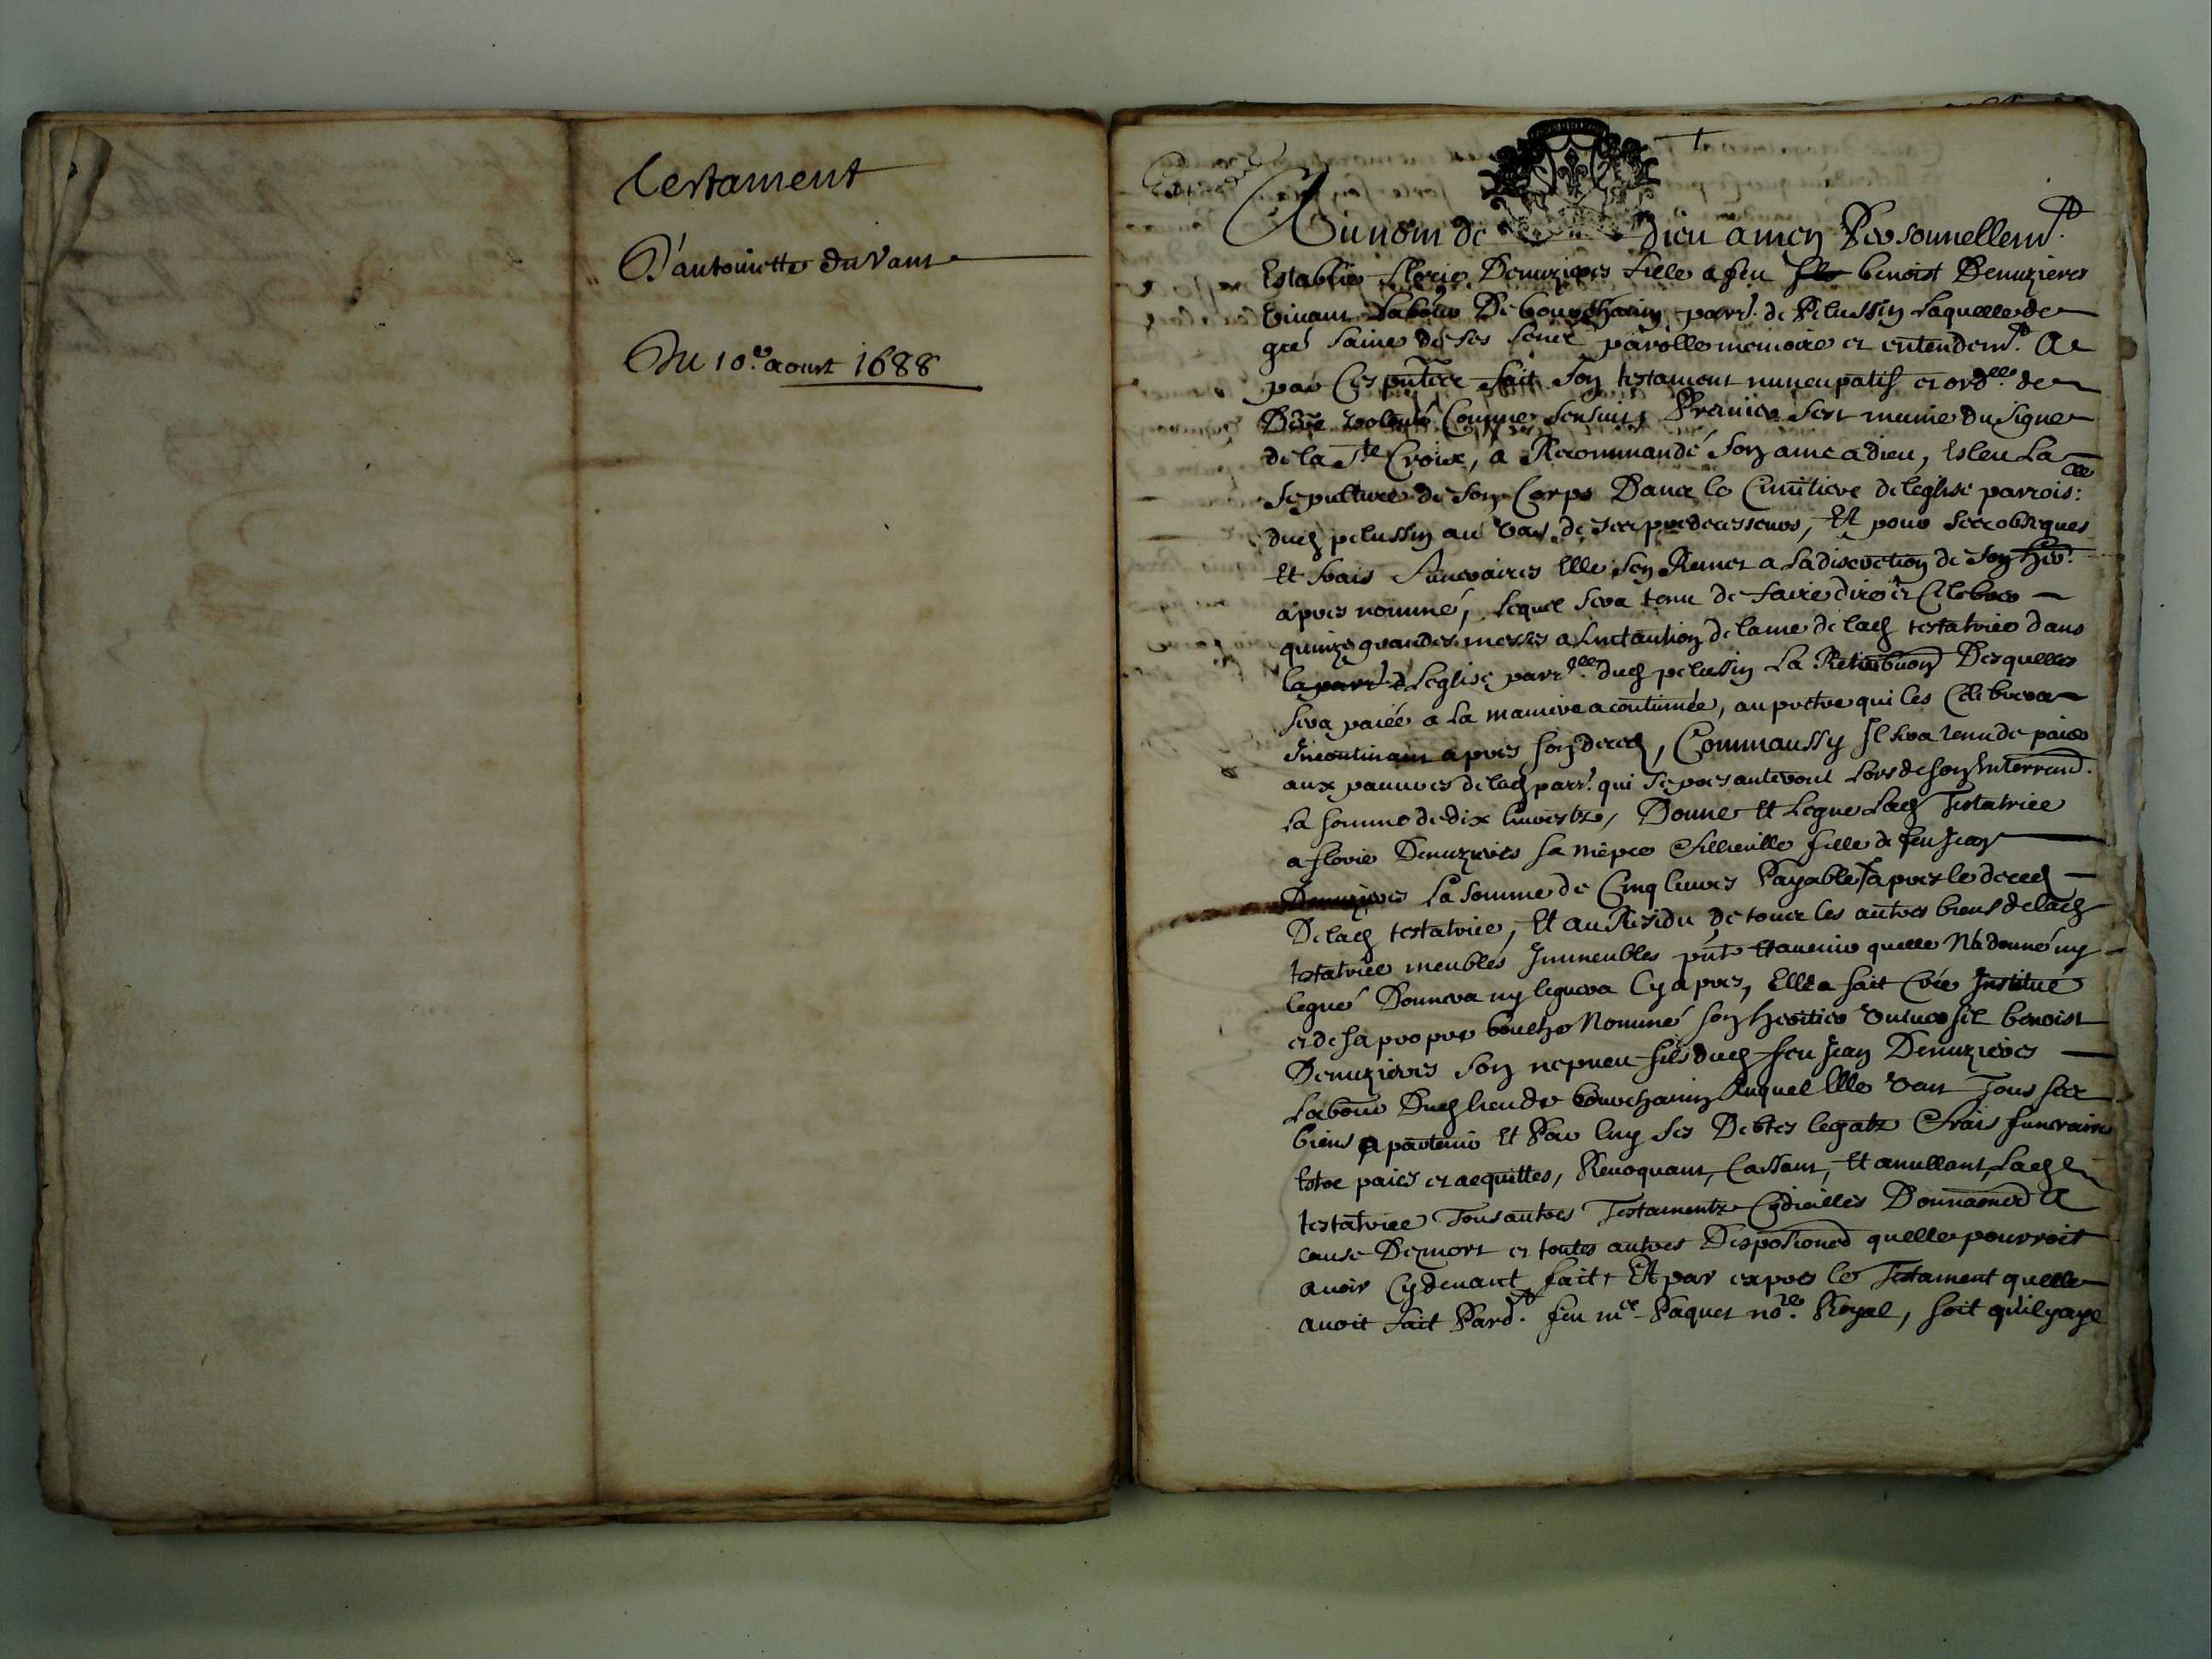 Testament
D'antoinette duvant
Du 10e aoust 1688
Au nom de dieu amen Personnellemt
Establie Florie Demuzieres fille a feu benoist Demuzieres
vivant labour De bourchanin parr. de Pelussin Laquelle de
gré saine de ses sens parolle memoire et entendemt. A
par Ces pntes fait son testament nuncupatif et ordlle de
Dere volonté Comme sensuit, Premier sest munie du signe
de la Ste Croix, a Recommandé son ame a dieu, Esleu La
sepulture de son Corps Dans le Cimitiere de leglise parrois:alle
dud pelussin au vas de ses predecesseurs, Et pour ses obseques
Et frais funeraires Elle sen Remet a la discretion de son her.
apres nommé, lequel sera tenu de faire dire et Celebrer
quinze grandes messes a lintantion de lame de lad testatrice dans
la parr d Leglise parrlle dud pelussin La Retribuon Desquelles
sera paiée a la maniere acoutumée, au pretre qui les Celebrera
Incontinant apres son deced, Commaussy Il sera tenu de paier
aux pauvres de lad parr. qui se presanteront Lors de son Interremd.
La somme de dix livres tz, Donne Et Legue Lad Testatrice
a florie Demuzieres sa niepce fillieulle fille de feu Jean
Demuzieres La somme de Cinq livres Payable apres le deced
De lad testatrice, Et au Residu de tous les autres biens de lad
testatrice meubles Immeubles pnts Et avenir quelle Na donné ny
legué Donnera ny leguera Cy apres, Elle a fait Crée Institué
et de sa propre bouche Nommé son heritier universel benoist
Demuzieres son nepveu fils dud feu Jean Demuzieres
Labour Dud lieu de bourchanin Auquel Elle veut Tous ses
biens apartenir Et Par luy ses Debtes legatz frais funeraire
Estre paiés et acquittes, Revoquant, Cassant, Et anullant, Lad
testatrice Tous autres Testamentz Codicilles Donnaoned A
cause De mort et toutes autres Disposioned quelle pourroit
avoir Cy devant fait, Et par expres le Testament quelle
avoit fait Pard. feu me Paquet nore Royal, soit quil y aye